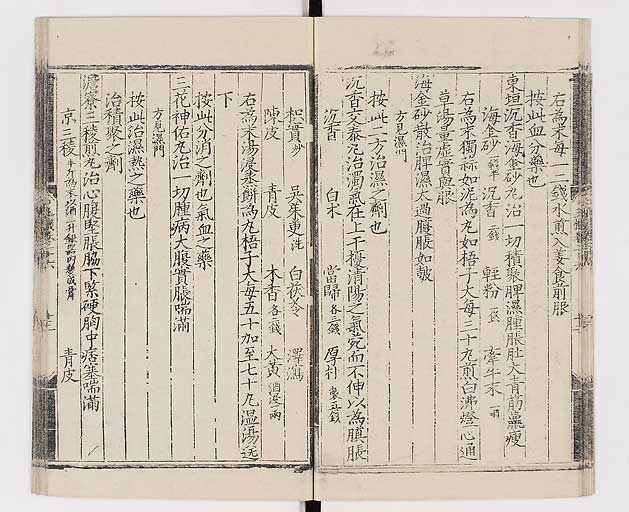 右為末每一二錢水煎入姜食前服
按此血分藥也
東垣沉香海金砂丸治一切積聚脾濕腫脹肚大青筋羸瘦
海金砂 沉香二錢 輕粉一錢 牽牛末一兩
右為末獨蒜如泥為丸如梧子大每三十丸煎白沸燈心通
草湯量虛實與服
海金砂散治脾濕太過腹脹如皷
方見濕門
按此二方治濕之劑也
沉香交泰丸治濁氣在上干擾清陽之氣宛而不伸以為䐜脹
沉香 白朮 當歸各二錢 厚朴製五錢
枳實炒 吳茱萸洗 白茯苓 澤瀉
陳皮 青皮 木香各二錢 大黃酒浸一兩
右為末湯浸烝餅為丸梧子大每五十加至七十丸溫湯送
下
按此分消之劑也氣血之藥
三花神佑丸治一切腫病大腹實脹喘滿
方見濕門
按此治濕熱之藥也
治積聚之劑
濟寮三稜煎丸治心腹堅脹脇下緊硬胸中痞塞喘滿
京三稜 青皮